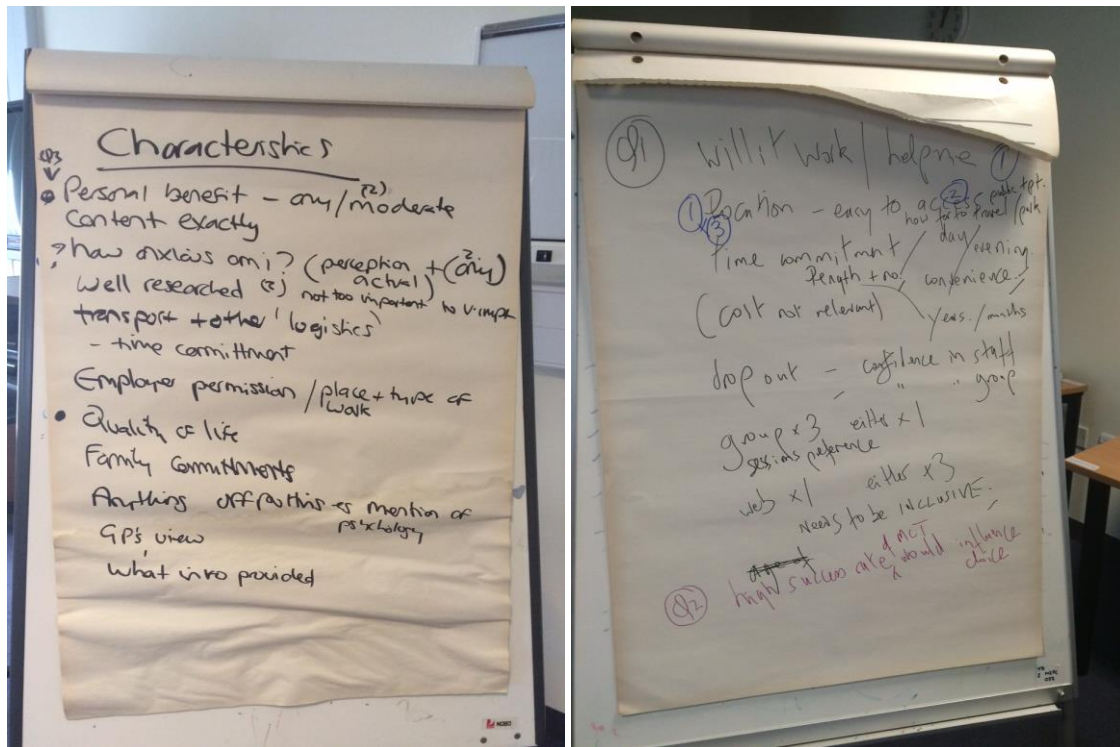 Characteristics
Q3
Personal benefit - any/moderate (2)
content exactly
? how anxious am i? (perception + (any) 2
actual)
well researched (2) not too important to v.impt
transport + other 'logistics'
- time committment
Employer permission / place + type of
work
Quality of life
Family committments
Anything offputting eg mention of
psychology
GP's view
what info provided
NOBO
Q1 Will it work / help me 1
1 Location - easy to access 2 public tpt.
3 how far to travel / park
Time commitment day / evening
length + no. convenience
(cost not relevant) years / months
drop out - confidence in staff
" " group
group x 3 either x 1
sessions preference
web x 1 either x 3
Needs to be INCLUSIVE.
Q2 high success rate of MCT would influence
choice